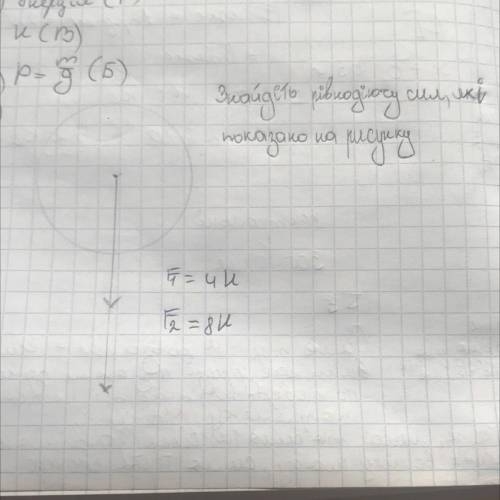 енергія (Г)
Н (В)
P = m/g (Б)
Знайдіть рівнодіючу сил, які
показано на рисунку
F1 = 4 Н
F2 = 8 Н